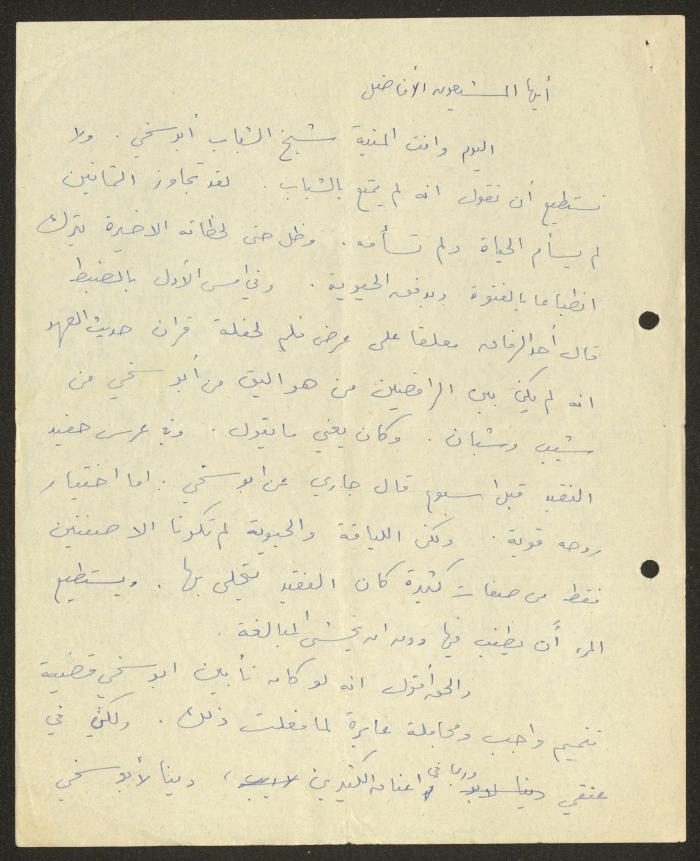 أيها المشيعون الأفاضل
اليوم وافت المنية شيخ الشباب أبو سخي. ولا
نستطيع أن نقول انه لم يتمتع بالشباب. لقد تجاوز الثمانين
لم يسأم الحياة ولم تسأمه. وظل حتى لحظاته الاخيرة يترك
انطباعا بالفتوة وبدفق الحيوية. وفي امس الأول بالضبط
قال أحد الرفاق معلقا على عرض فلم لحفلة قران حديث العهد
انه لم يكن بين الراقصين من هو اليق من أبو سخي من
شيب وشبان. وكان يعني ما يقول. وفي عرس حفيد
الفقيد قبل اسبوع قال جاري عن ابو سخي: اما اختيار
روحه قوية. ولكن اللياقة والحيوية لم تكونا الا صفتين
فقط من صفات كثيرة كان الفقيد يتحلى بها. ويستطيع
المرء أن يطنب فيها دون ان يخشى المبالغة.
والحق أقول انه لو كان تأبين ابو سخي قضية
تتميم واجب ومجاملة عابرة لما فعلت ذلك. ولكن في
عنقي دينا لابو وربما في اعناق الكثيرين، دينا لأبو سخي